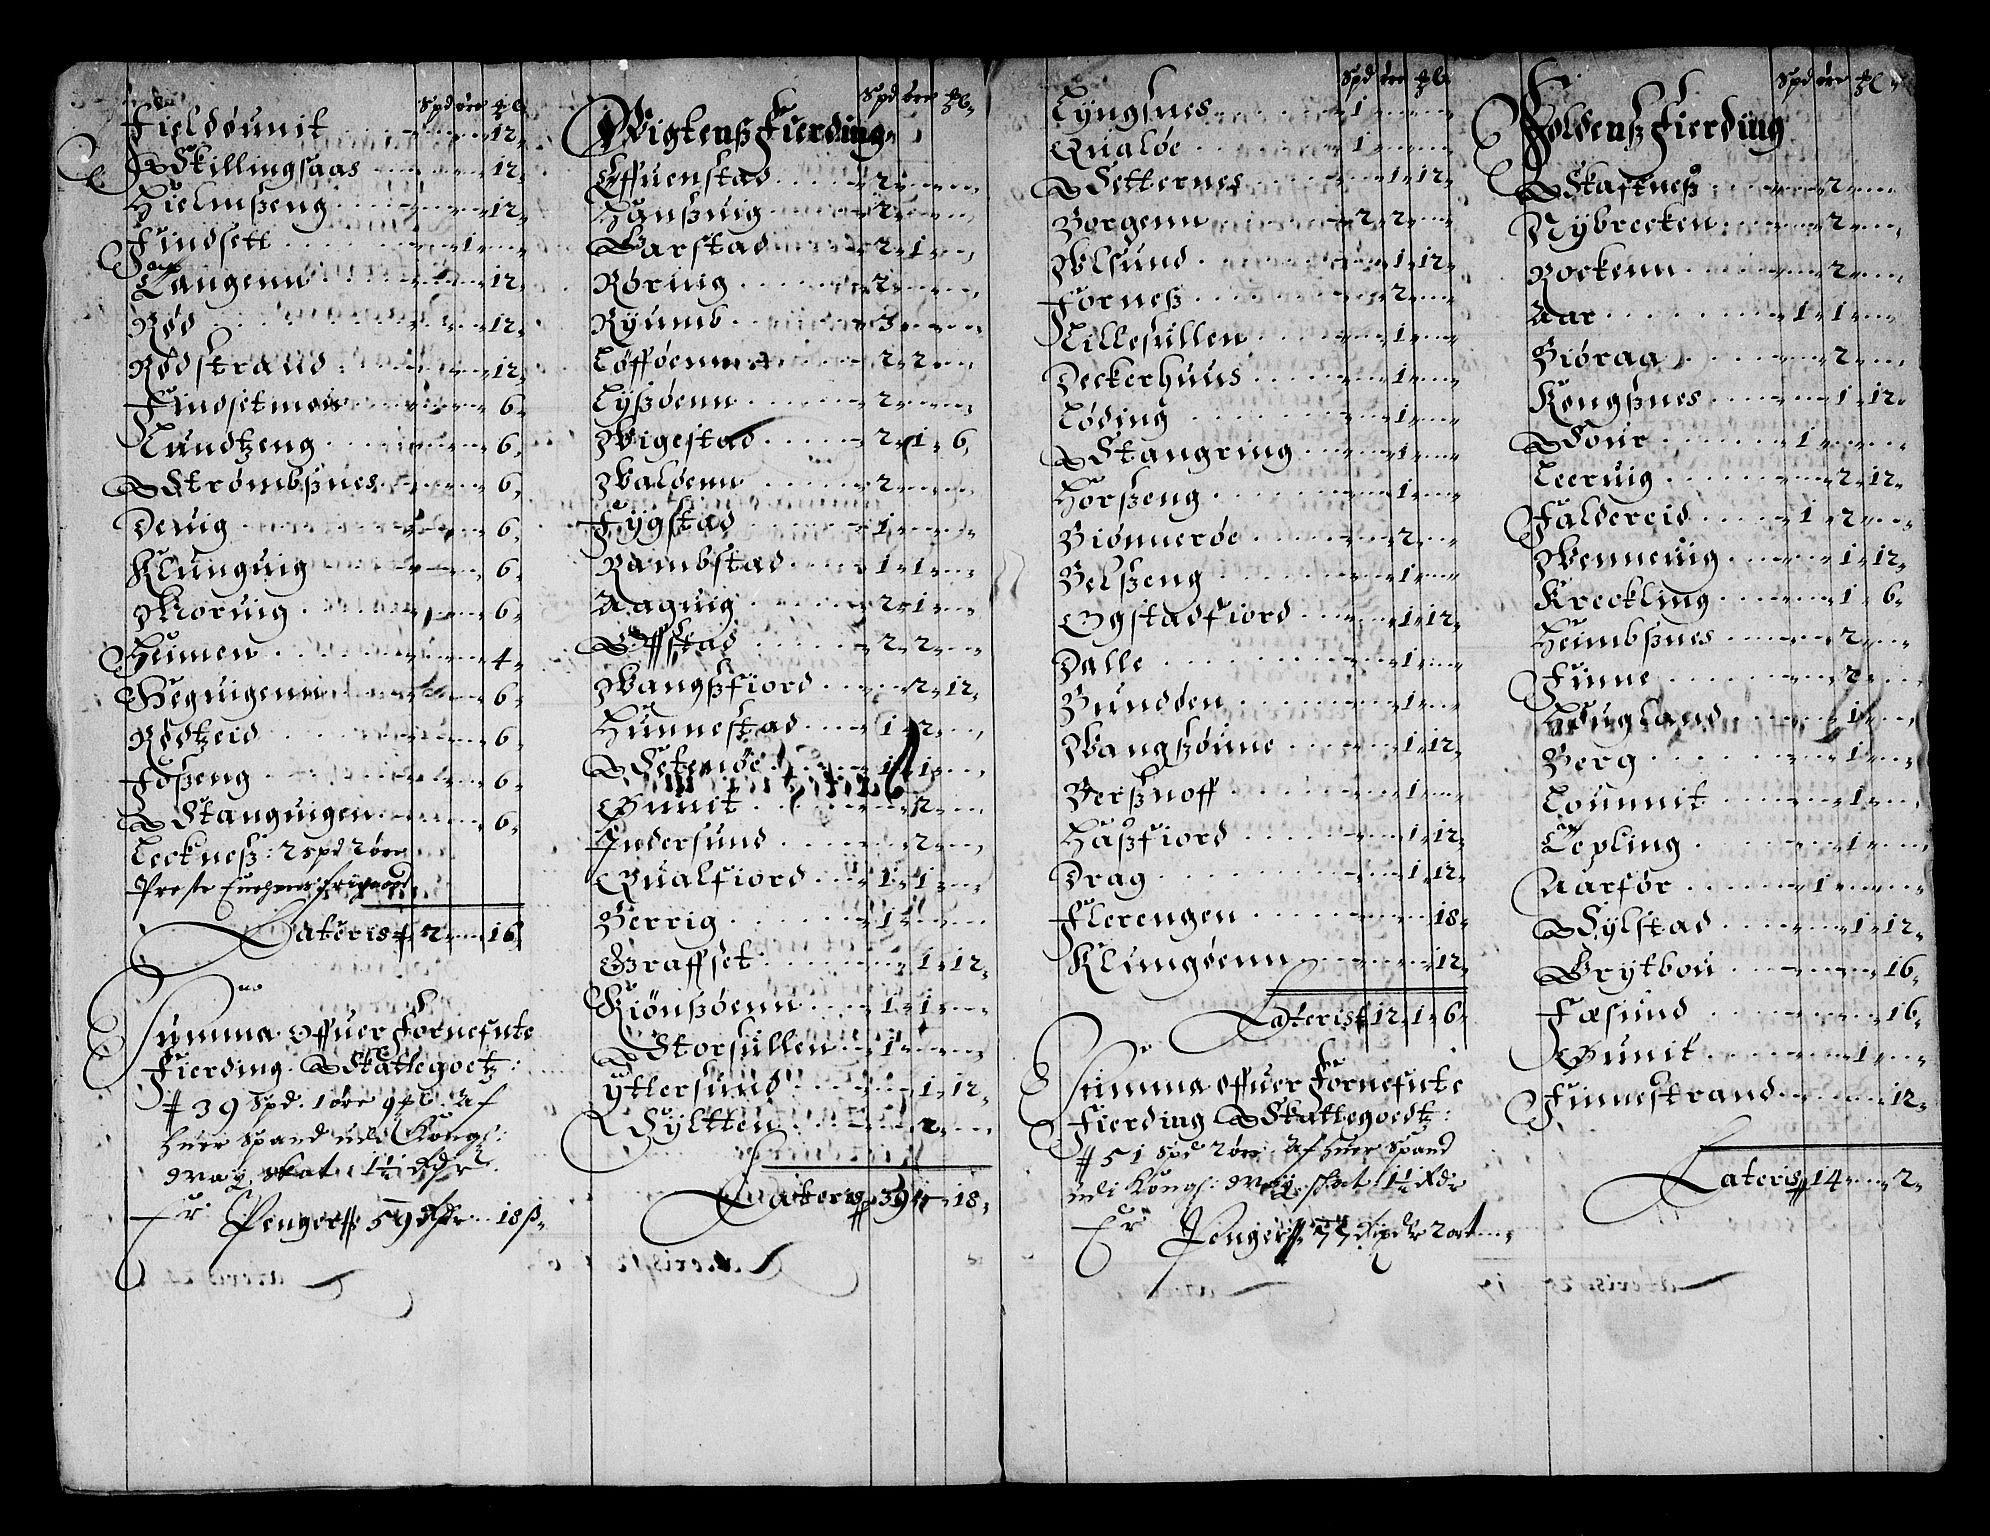 Spd øre ℔
Fieldounit 12
Skillingsaas 12
Hielmßeng 12
Findsett 1
Langenn 12
Rød 12
Rødstrand 12
Findsetmoen 6
Lundtzeng 6
Strømbsnes 6
Deruig 6
Klunguig 6
Moruig 6
Humen 4
Heguigenn 6
Rødtzeid 6
Foßeng 6
Stanguigen 6
Leckneß: 2 spd 2 øre
Preste
Lateris # 2 16
Summa offuer Fornefnte
Fierding Skattegoetz:
# 39 Spd. 1 øre 9 ℔. Af
huer Spand udi Kongs:
May. Skat 1½ Rdr
Er Penger # 59 dlr 18 ß
Spd øre ℔
Wigtenß Fierding
Effuenstad 2
Hanßuig 2
Garstad 2 1
Røruig 2
Ryumb 3
Løfføenn 2 2
Lyßøenn 2
Wigestad 2 1 6
Waldenn 2
Fygstad 1
Rambstad 1 1
Aaguig 2 1
Offstad 2 2
Wangßfiord 2 12
Hunnestad 1 2
Setenøe 1 1
Gunit 2
Indersund 2
Qualfiord 1 1
Berrig 1
Graffset 1 12
Kiønßøenn 1 1
Storsullen 1
Yttersund 1 12
Syltten 2
Lateris # 39 18
Spd øre ℔
Lyngsnes 1
Qualøe 1
Setternes 1 12
Borgenn 2 2
Ulsund 1 12
Forneß 2
Lillesullen 1
Deckerhuus 1
Løding 1
Stangring 1
Horßeng 1
Biønnerøe 2
Belßeng 1
Ogstadfiord 1 12
Dalle 1
Bundden 1
Wangßøune 1 12
Berßnoff 1
Haßfiord 1 12
Drag 1 12
Flerengen 18
Klungøenn 12
Lateris # 12 1 6
Summa offuer Fornefnte
Fierding Skattegoedtz:
# 51 Spd 2 øre Af huer Spand
udi Kongs: May: skat 1½ Rdr
Er Penger # 77 Ripdlr 2 ort
Spd øre ℔
Foldenß Fierding
Skaftneß 2
Nybrecken 2
Rockenn 2
Aar 1 1
Biøraa 2
Kongßnes 1 12
Soue 1
Leeruig 2 12
Faldereid 1 2
Wenneuig 1 12
Kreckling 1 6
Heimbsnes 2
Finne 2
Haugland 1
Berg 1
Lounnit 1
Løpling 1
Aarfør 1
Sylstad 1 12
Grytbou 16
Fæsund 16
Gunit 1
Finnestrand 12
Lateris # 14 2